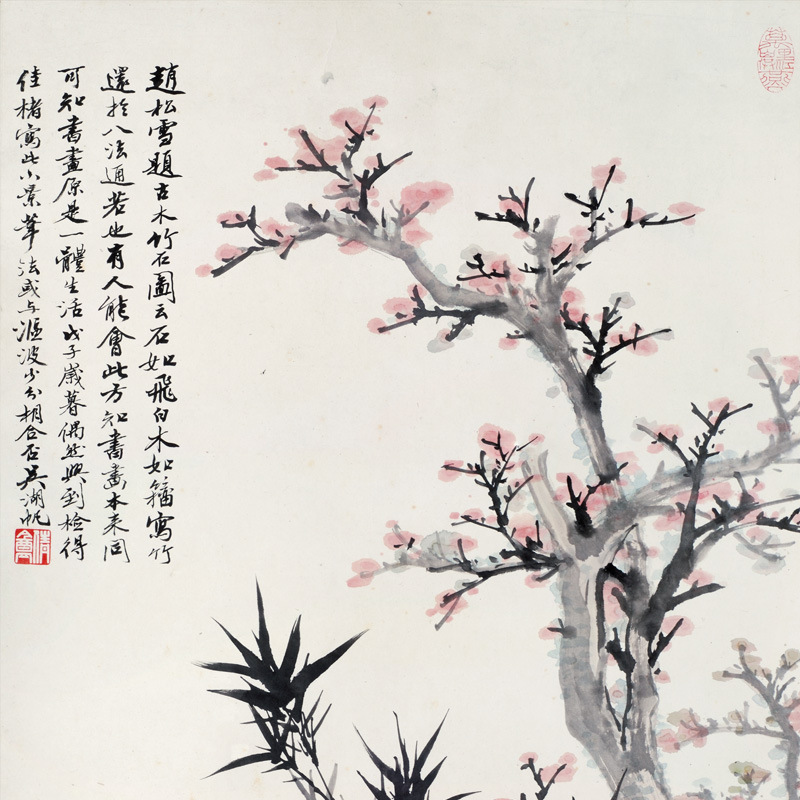 趙松雪題古木竹石圖云石如飛白木如籀寫竹
還於八法通若也有人能會此方知書畫本來同
可知書畫原是一體生活戊子歲暮偶然興到檢得
佳楮寫此小景筆法或与漚波少分相合否吳湖帆